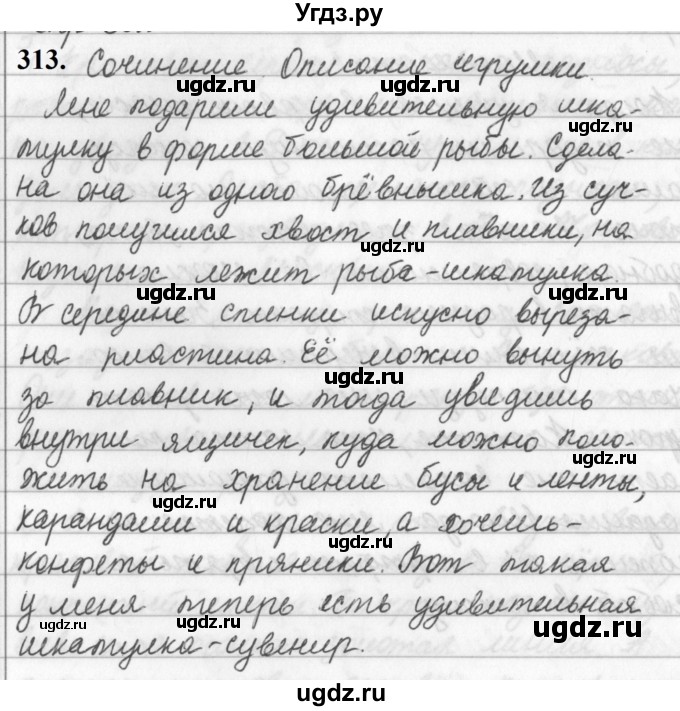 Угдз.ру
313. Сочинение. Описание игрушки.
ugdz.ru ugdz.ru
Мне подарили удивительную шка-
ugdz.ru
тулку в форме большой рыбы. Сдела-
на она из одного брёвнышка. Из суч-
ugdz.ru
ков получился хвост и плавники, на
ugdz.ru
которых лежит рыба-шкатулка.
ugdz.ru
В середине спинки искусно выреза-
ugdz.ru
на пластина. Её можно вынуть
ugdz.ru
за плавник, и тогда увидишь
внутри ящичек, куда можно поло-
ugdz.ru
жить на хранение бусы и ленты,
ugdz.ru
карандаши и краски, а хочешь-
ugdz.ru
конфеты и пряники. Вот такая
у меня теперь есть удивительная
ugdz.ru ugdz.ru ugdz.ru
шкатулка-сувенир.
ugdz.ru